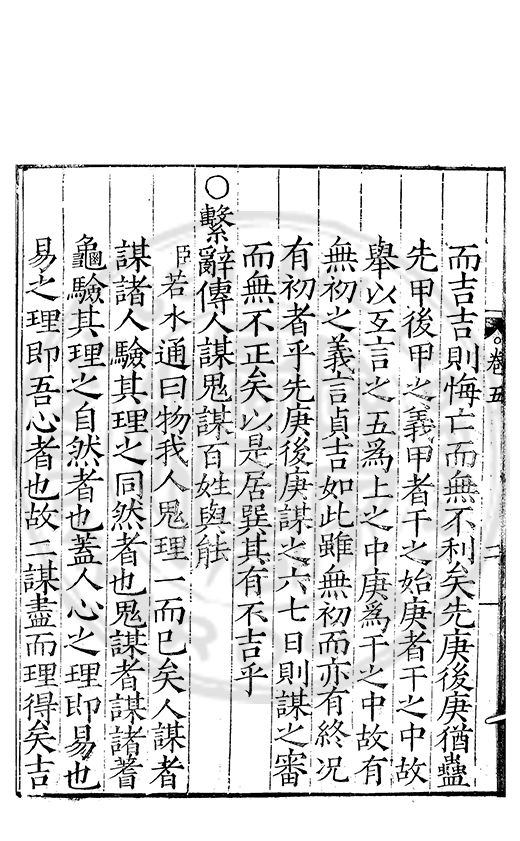 而吉吉則悔亡而無不利矣先庚後庚猶蠱
先甲後甲之義甲者干之始庚者干之中故
舉以互言之五爲上之中庚爲干之中故有
無初之義言貞吉如此雖無初而亦有終况
有初者乎先庚後庚謀之六七日則謀之審
而無不正矣以是居巽其有不吉乎
○繫辭傳人謀鬼謀百姓與能
臣若水通曰物我人鬼理一而已矣人謀者
謀諸人驗其理之同然者也鬼謀者謀諸蓍
龜驗其理之自然者也蓋人心之理即易也
易之理即吾心者也故二謀盡而理得矣吉
卷五